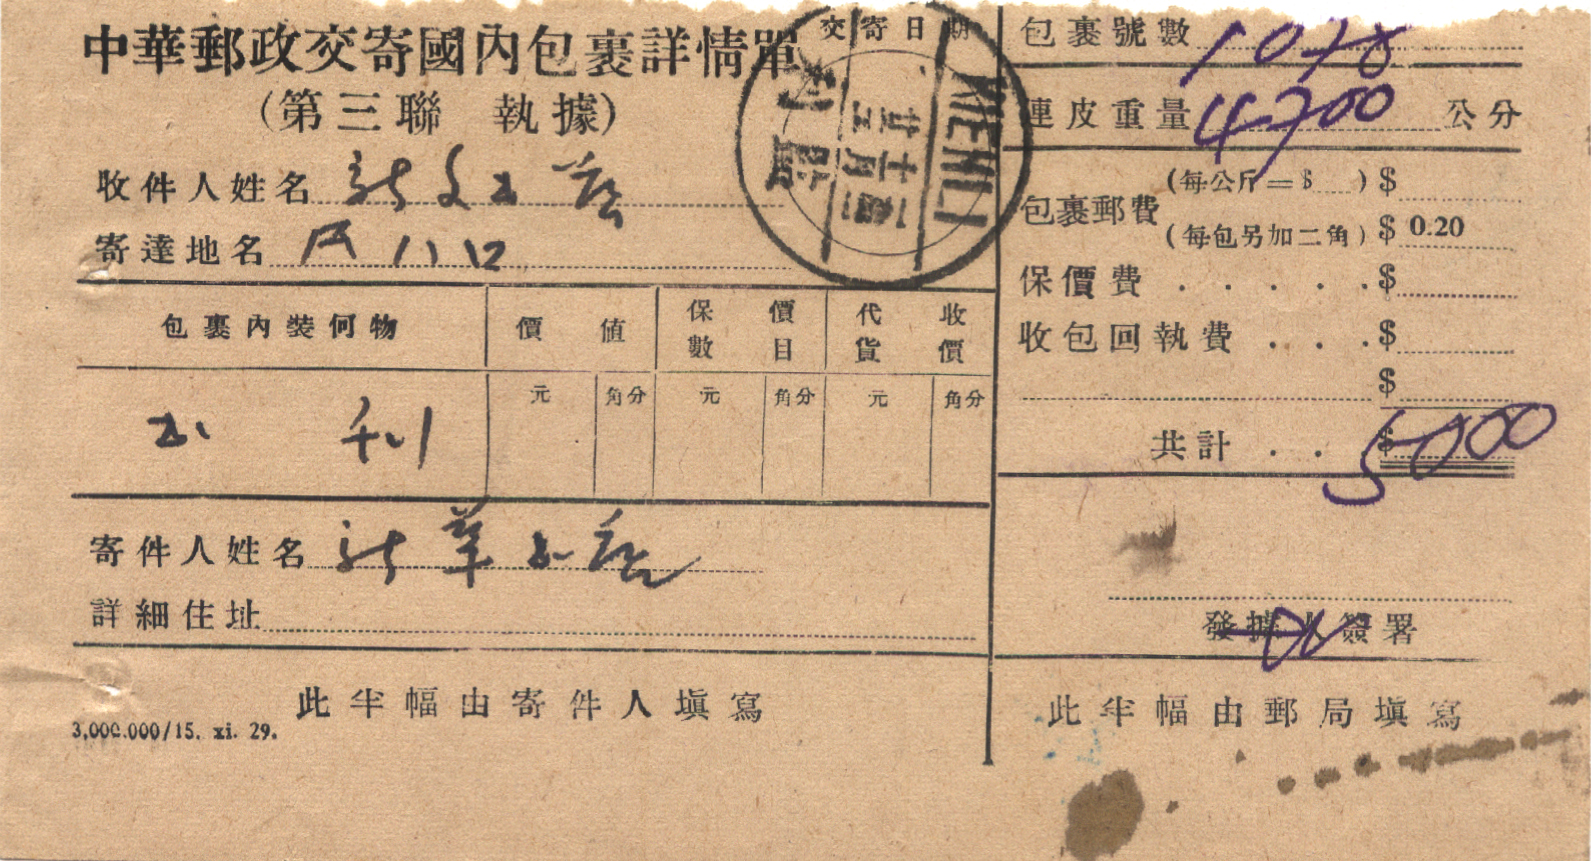 中華郵政交寄國內包裹詳情單
(第三聯 執據)
收件人姓名
寄達地名
包裹內裝何物
價値
保價數目
代收貨價
元 角分 元 角分 元 角分
寄件人姓名 新華書店
詳細住址
此半幅由寄件人填寫
3,000.000/15. xi. 29.
交寄日期
KIENLI
監利
包裹號數 1078
連皮重量 4700 公分
包裹郵費 (每公斤=$ ) $
(每包另加二角) $ 0.20
保價費 . . . . . $
收包回執費 . . . $
$
共計 . . $ 5000
發據人簽署
此半幅由郵局填寫